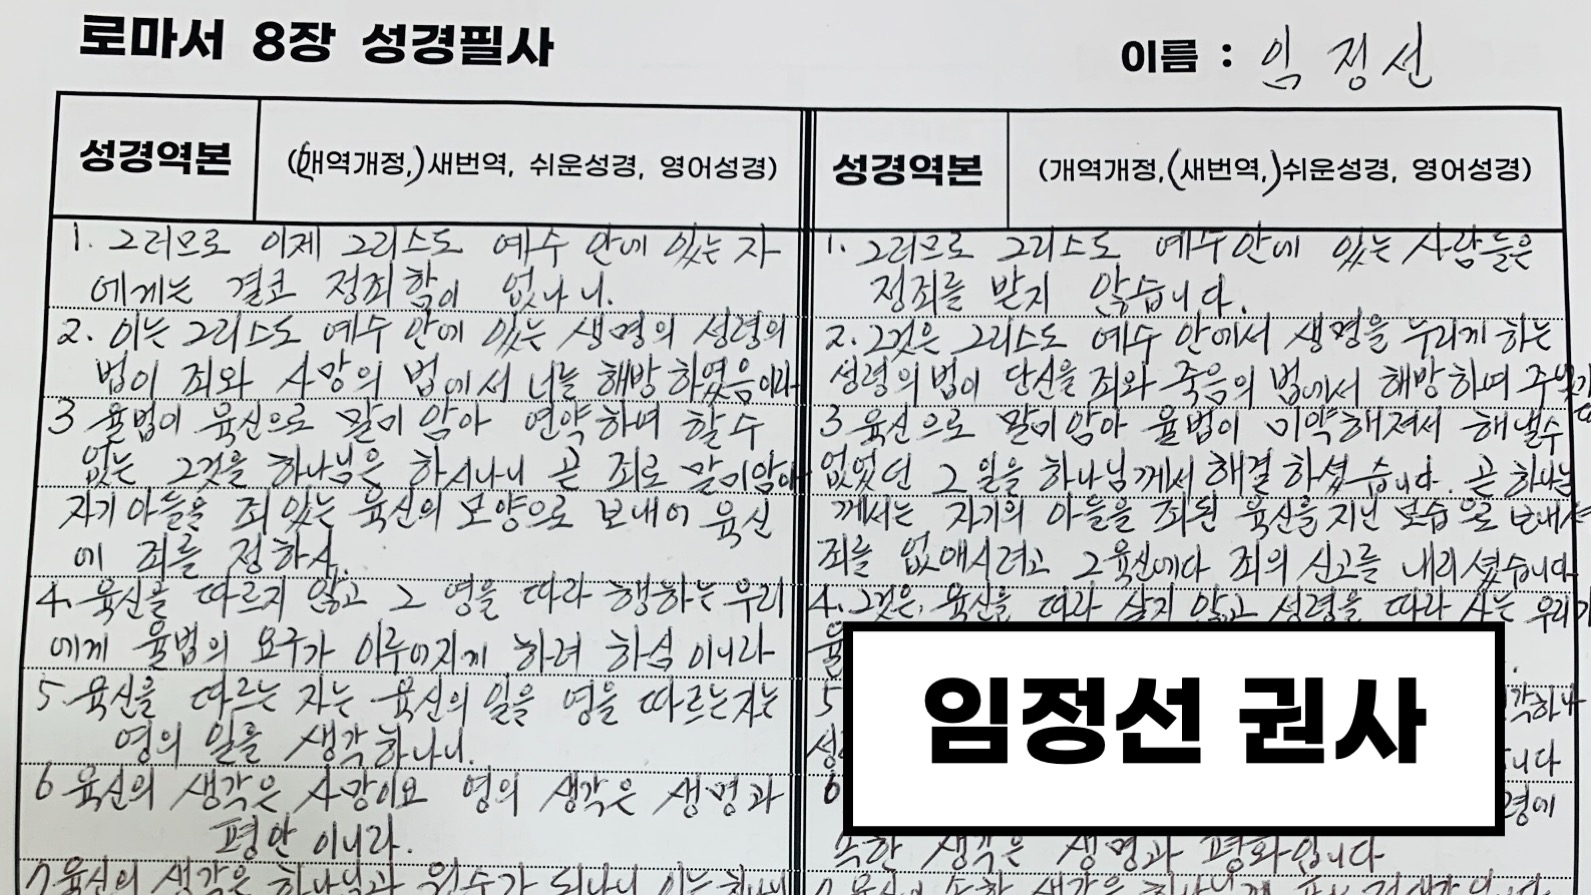 로마서 8장 성경필사
이름 : 임정선
성경역본 (개역개정,) 새번역, 쉬운성경, 영어성경)
1. 그러므로 이제 그리스도 예수 안에 있는 자
에게는 결코 정죄함이 없나니.
2. 이는 그리스도 예수 안에 있는 생명의 성령의
법이 죄와 사망의 법에서 너를 해방하였음이라
3 율법이 육신으로 말미암아 연약하여 할수
없는 그것을 하나님은 하시나니 곧 죄로 말미암아
자기 아들을 죄 있는 육신의 모양으로 보내어 육신
에 죄를 정하사.
4. 육신을 따르지 않고 그 영을 따라 행하는 우리
에게 율법의 요구가 이루어지게 하려 하심이니라
5. 육신을 따르는 자는 육신의 일을 영을 따르는자는
영의 일을 생각하나니.
6 육신의 생각은 사망이요 영의 생각은 생명과
평안이니라.
7. 육신의 생각은 하나님과 원수가 되나니 이는 하나님
성경역본 (개역개정, (새번역,) 쉬운성경, 영어성경)
1. 그러므로 그리스도 예수안에 있는 사람들은
정죄를 받지 않습니다.
2. 그것은 그리스도 예수 안에서 생명을 누리게 하는
성령의 법이 당신을 죄와 죽음의 법에서 해방하여 주
3 육신으로 말미암아 율법이 미약해져서 해낼수
없었던 그 일을 하나님께서 해결하셨습니다. 곧 하나님
께서는 자기의 아들을 죄된 육신을 지닌 모습으로 보내셔
죄를 없애시려고 그 육신에다 죄의 선고를 내리셨습니다
4. 그것은, 육신을 따라 살지 않고 성령을 따라 사는 우리가
율
5 각하나
성 니다
6 령에
속한 생각은 생명과 평화입니다
임정선 권사